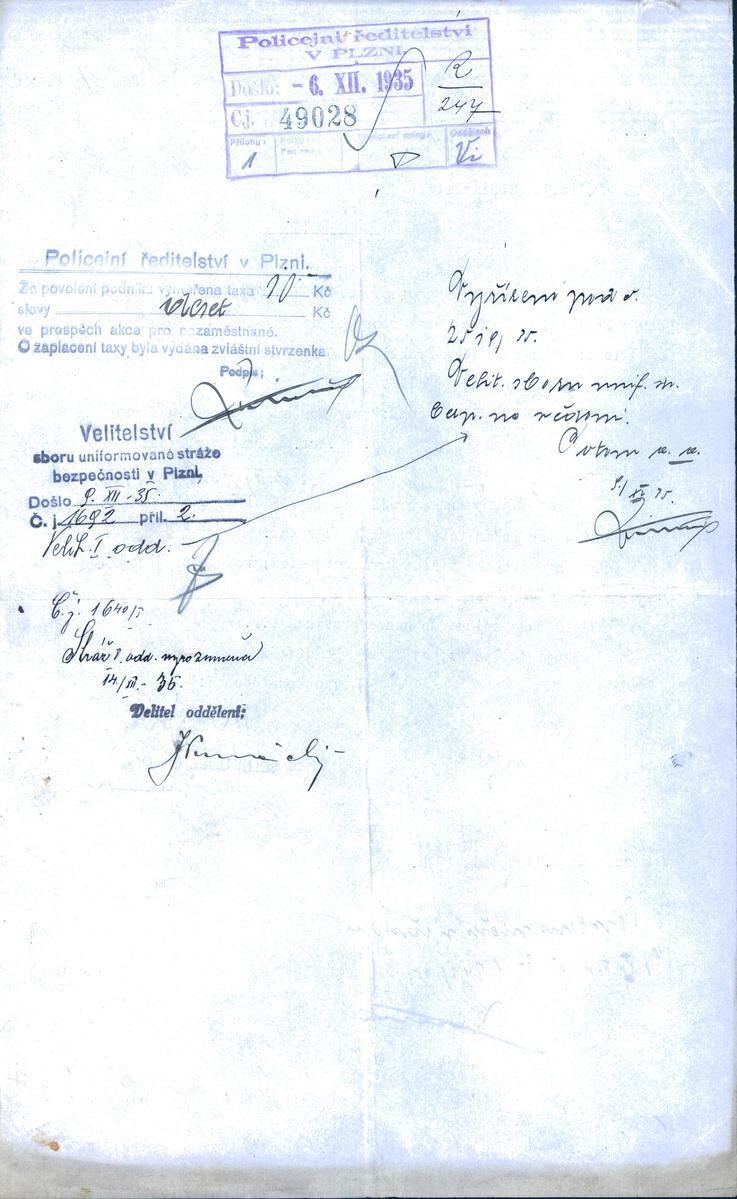 Policejní ředitelství
V PLZNI
R
247
Došlo: - 6. XII. 1935
Čj. 49028
Přílohy:
1
Oddělení
Vi
Policejní ředitelství v Plzni.
Za povolení podniku vyměřena taxa 10.- Kč
slovy Kč
ve prospěch akce pro nezaměstnané.
O zaplacení taxy byla vydána zvláštní stvrzenka.
Podpis;
Vyřízeno pod č.
Velit. sboru unif. st.
bezp. na vědomí.
Potom a. a.
Velitelství
sboru uniformované stráže
bezpečnosti v Plzni,
Došlo 9. XII. 35.
Č. j. 1692 příl. 2.
Velit. I. odd.
Č.j. 1640/I
Stráž I. odd. vyrozuměna
14/XII. - 35.
Velitel oddělení;